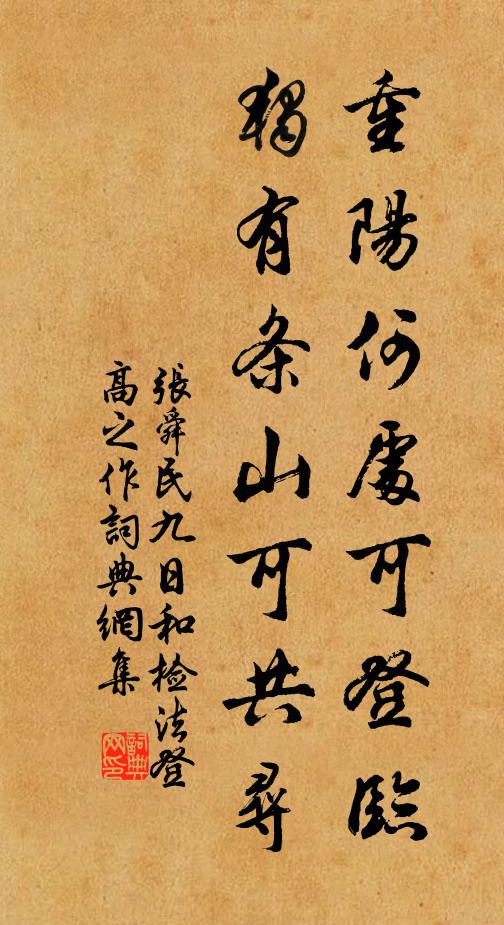 重陽何處可登臨
獨有条山可共尋
張舜民九日和檢法登
高之作詞典網集
詞典網印